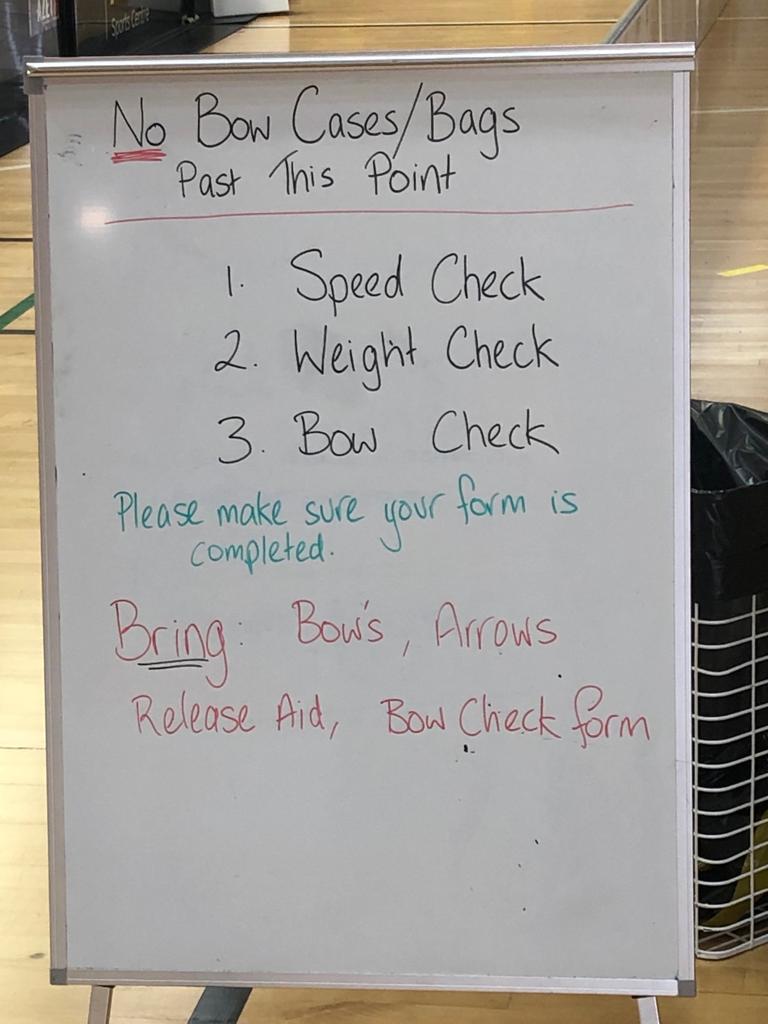 Sports Centre
No Bow Cases/Bags
Past This Point
1. Speed Check
2. Weight Check
3. Bow Check
Please make sure your form is
completed.
Bring: Bow's, Arrows
Release Aid, Bow Check form